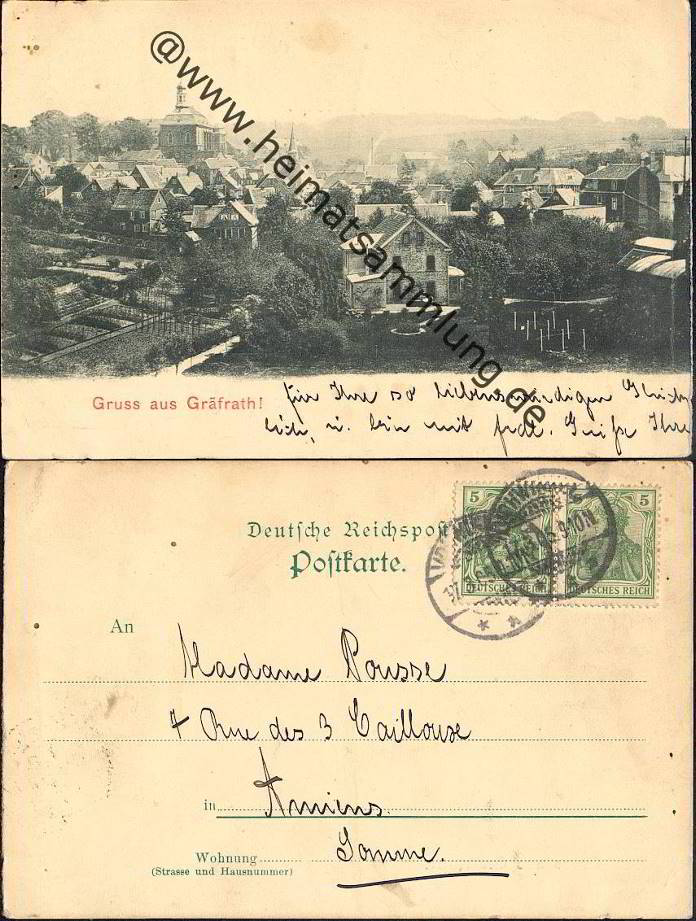 @www.heimatsammlung.de
Gruss aus Gräfrath!
für Ihre so liebenswürdigen Glückw
u. bin mit frdl. Grüße Ihre
Deutsche Reichspost
Postkarte.
5 5
DEUTSCHES REICH DEUTSCHES REICH
An
Madame Pousse
7 Rue des 3 Cailloux
in Amiens.
Wohnung Somme.
(Strasse und Hausnummer)